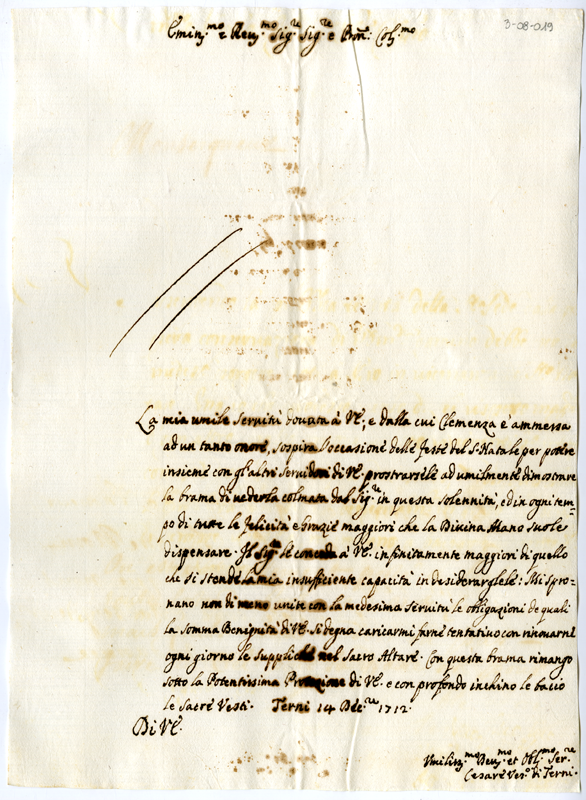 3-08-019
Emin.mo e Rev.mo Sig.re Sig.re e Pron. Col.mo
La mia umile servitù douuta à VE, e dalla cui Clemenza è ammessa
ad un tanto onore, sospira l'occasione delle feste del S. Natale per potere
insieme con gl'altri servidori di VE. prostrarsele ad umilmente dimostrare
la brama di vederla colmata dal Sig.re in questa solennità, ed in ogni tem=
po di tutte le felicità e Grazie maggiori che la Divina Mano suole
dispensare. Il Sig.re le conceda à VE. infinitamente maggiori di quello
che si stende la mia insufficiente capacità in desiderargliele: Mi spro=
nano non di meno unite con la medesima servitù le obligazioni de quali
la somma Benignità di VE. si degna caricarmi farne tentativo con rinouarne
ogni giorno le suppliche nel Sacro Altare. Con questa brama rimango
sotto la Potentissima Protezione di VE. e con profondo inchino le bacio
le Sacre Vesti. Terni 14 Dec.re 1712.
Di VE.
Umiliss.mo Deu.mo et Obl.mo Ser.re
Cesare Ves.o di Terni.